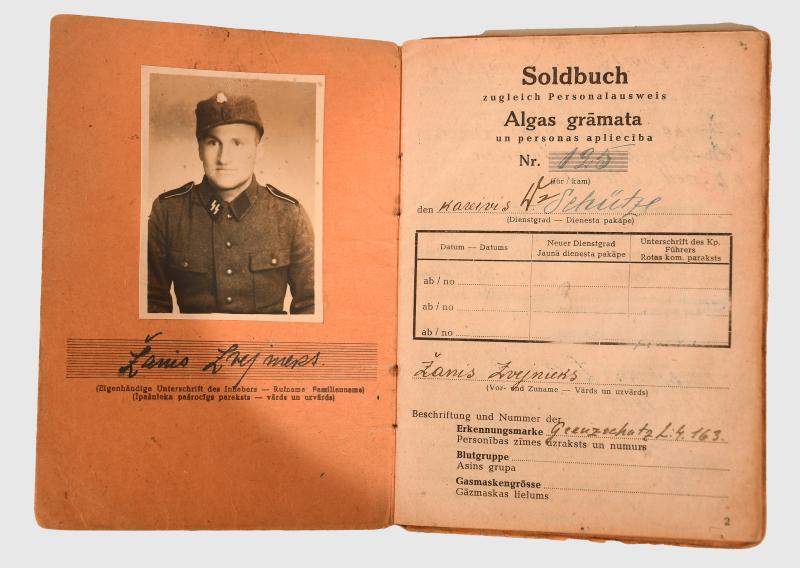 Žanis Zvejnieks.
(Eigenhändige Unterschrift des Inhabers — Rufname Familienname)
(Īpašnieka pašrocīgs paraksts — vārds un uzvārds)
Soldbuch
zugleich Personalausweis
Algas grāmata
un personas apliecība
Nr. 125
(für / kam)
den kareivis Schütze
(Dienstgrad — Dienesta pakāpe)
Datum — Datums
Neuer Dienstgrad
Jaunā dienesta pakāpe
Unterschrift des Kp.
Führers
Rotas kom. paraksts
ab / no
ab / no
ab / no
Žanis Zvejnieks
(Vor- und Zuname — Vārds un uzvārds)
Beschriftung und Nummer der
Erkennungsmarke Grenzschutz L. 4. 163.
Personības zīmes uzraksts un numurs
Blutgruppe
Asins grupa
Gasmaskengrösse
Gāzmaskas lielums
2